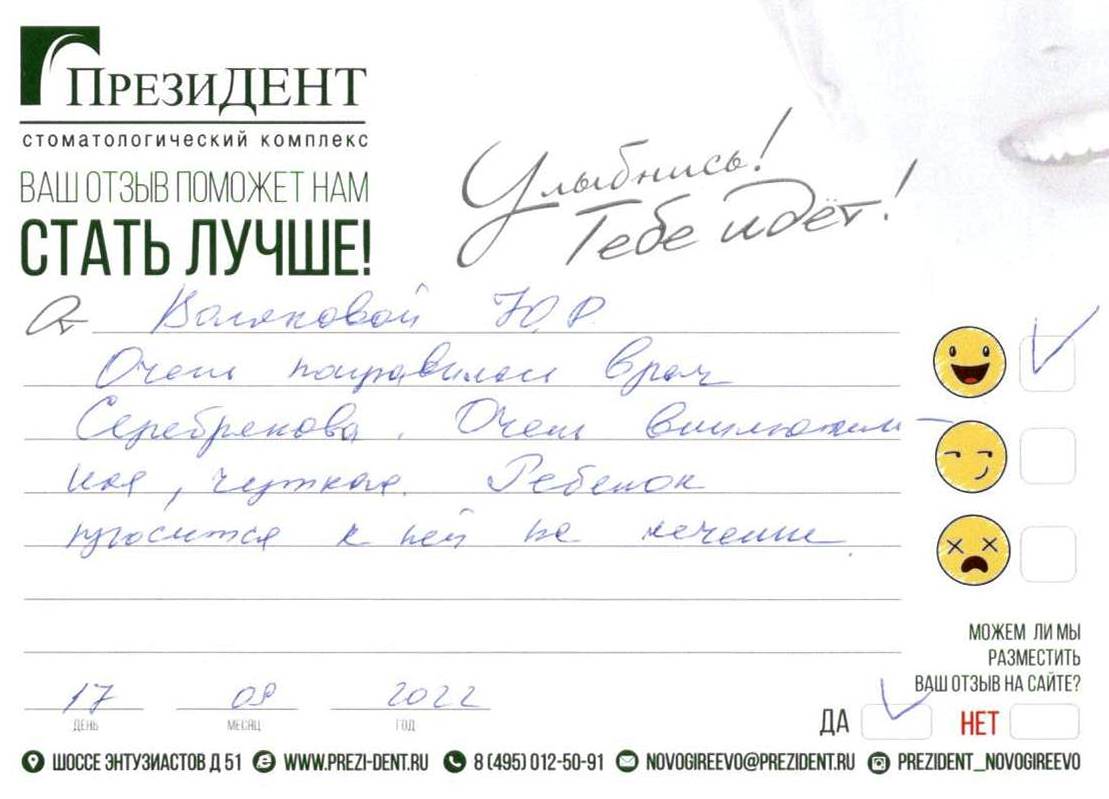 ПРЕЗИДЕНТ
СТОМАТОЛОГИЧЕСКИЙ КОМПЛЕКС
ВАШ ОТЗЫВ ПОМОЖЕТ НАМ
СТАТЬ ЛУЧШЕ!
Улыбнись!
Тебе идёт!
От Ю.Р.
Очень понравилась врач
Серебрякова. Очень вниматель-
ная, чуткая. Ребенок
просится к ней на лечение.
17 2022
ДЕНЬ МЕСЯЦ ГОД
МОЖЕМ ЛИ МЫ
РАЗМЕСТИТЬ
ВАШ ОТЗЫВ НА САЙТЕ?
ДА НЕТ
ШОССЕ ЭНТУЗИАСТОВ Д 51 WWW.PREZI-DENT.RU 8 (495) 012-50-91 NOVOGIREEVO@PREZIDENT.RU PREZIDENT_NOVOGIREEVO